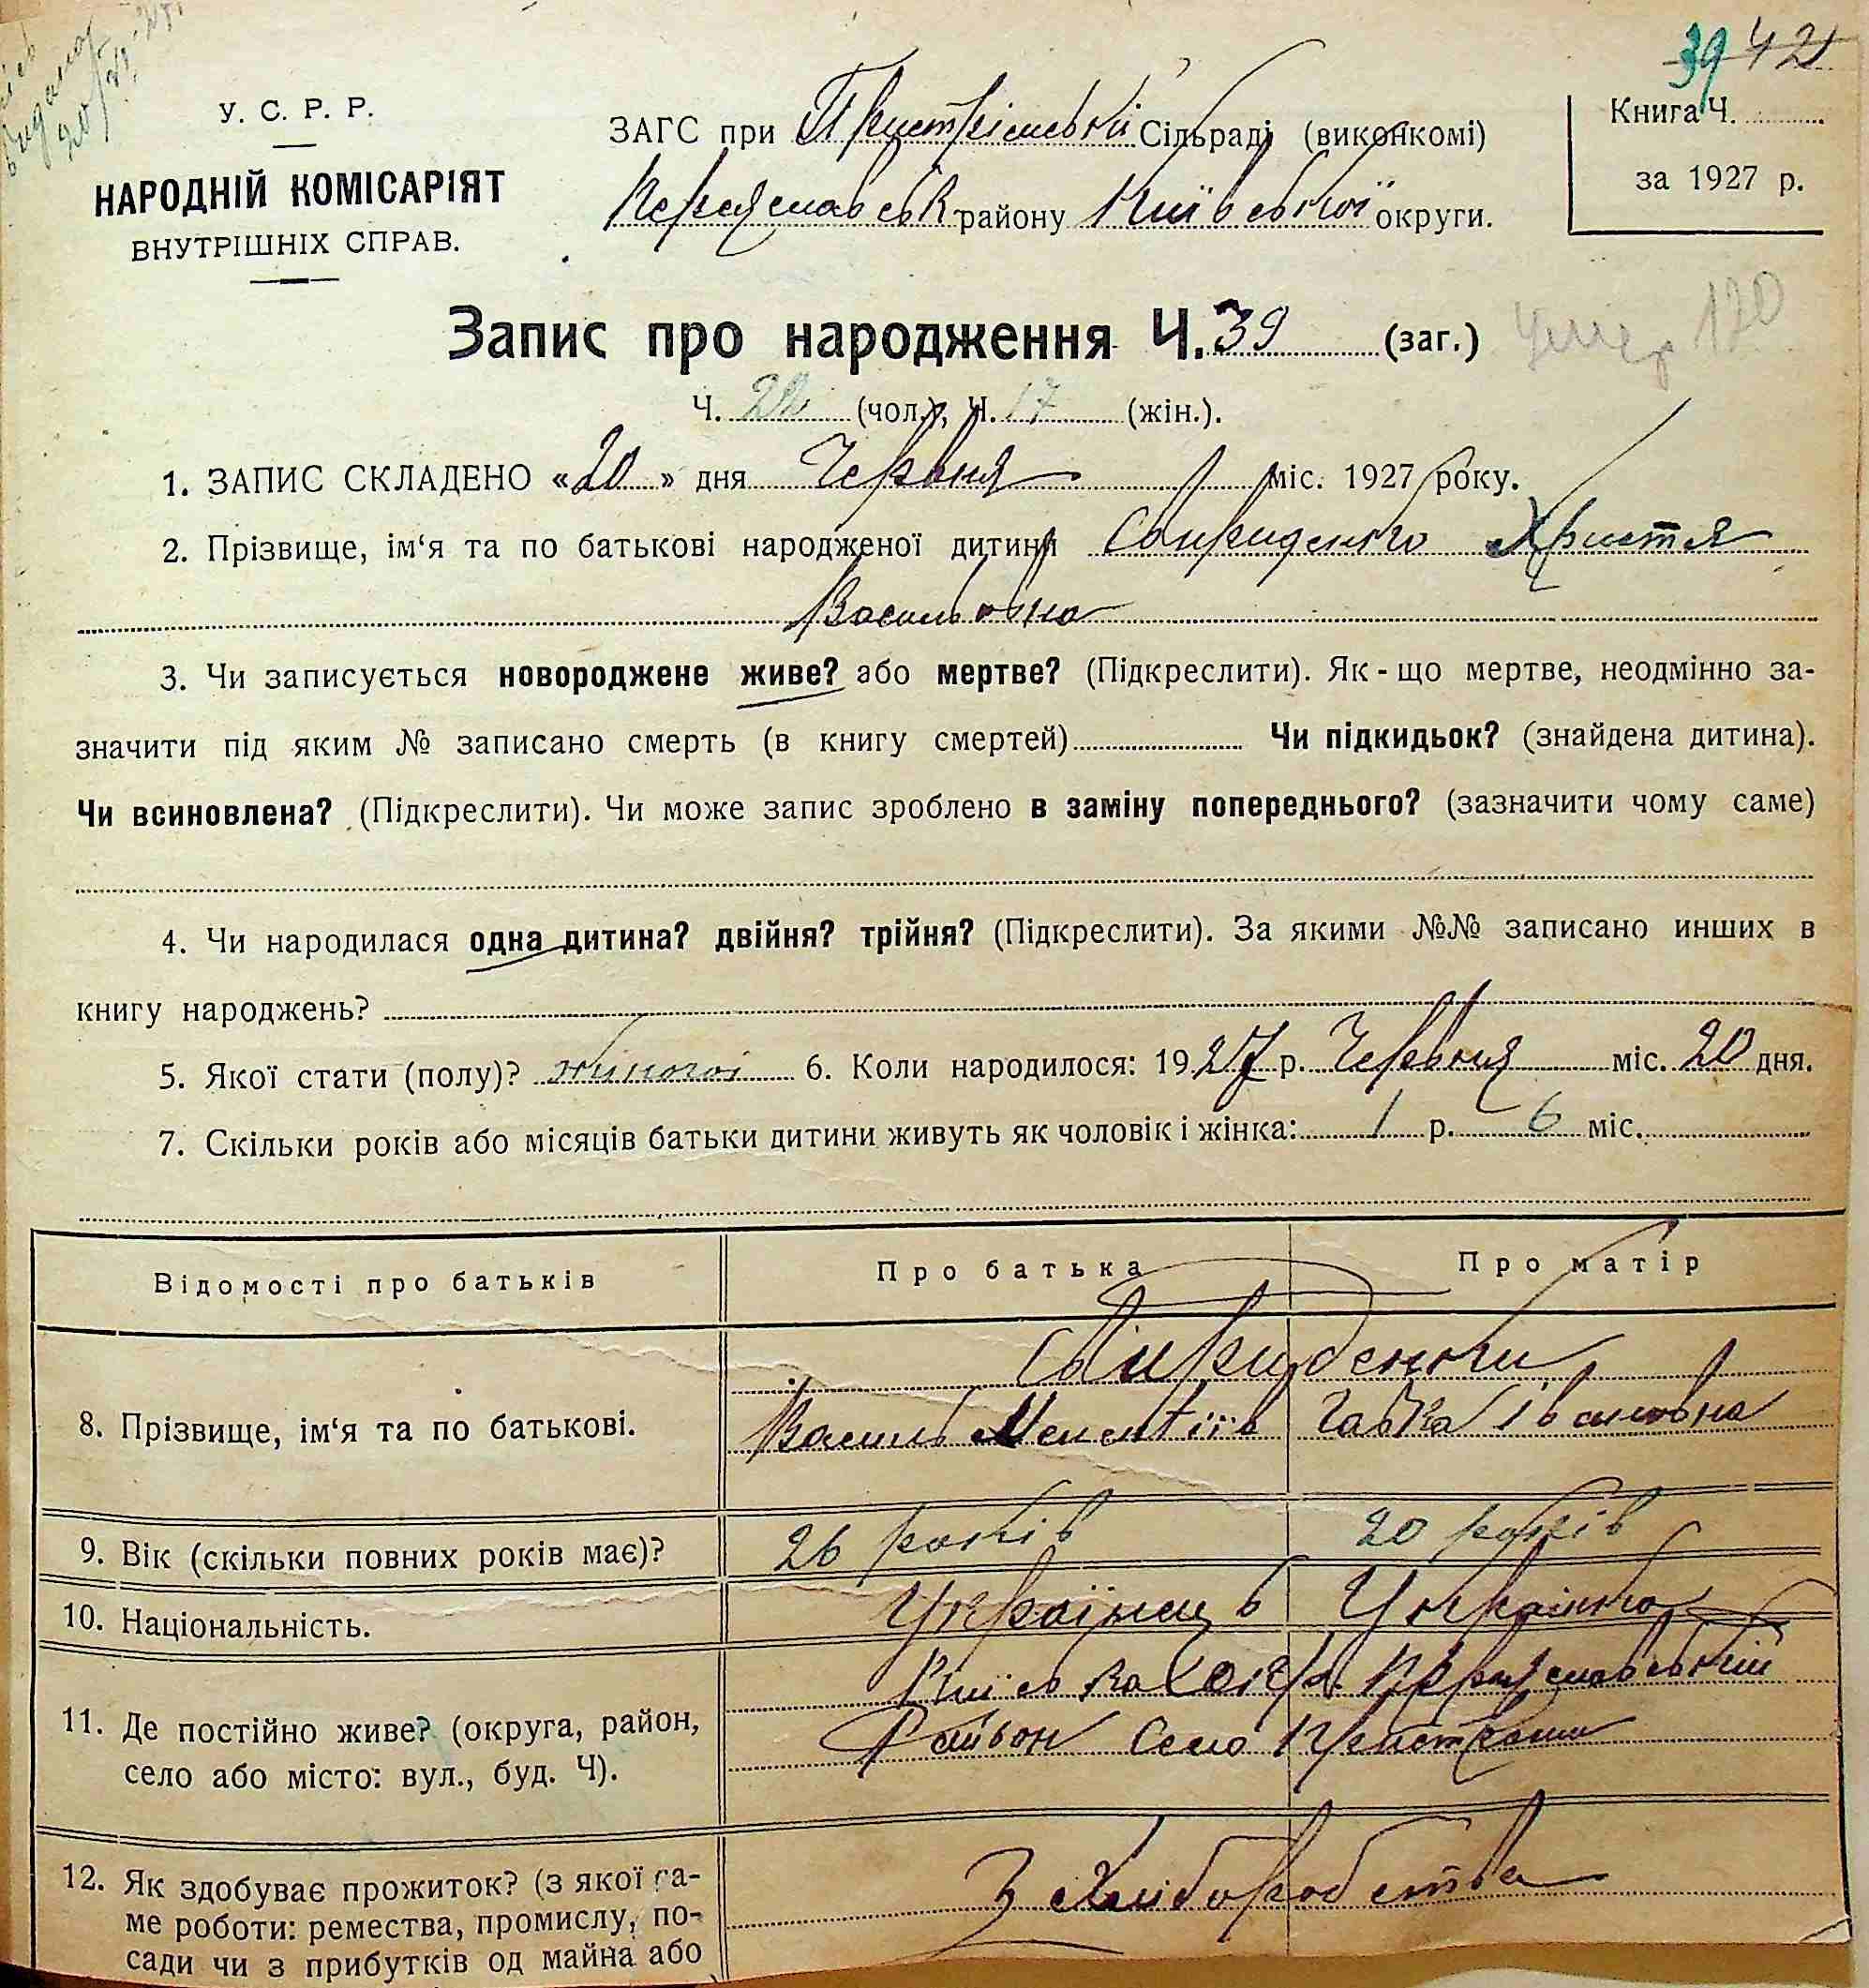 39 42
У. С. Р. Р.
НАРОДНІЙ КОМІСАРІЯТ
ВНУТРІШНІХ СПРАВ.
ЗАГС при Пристрімській Сільраді (виконкомі)
Переяславськ району Київської округи.
Книга Ч.
за 1927 р.
Запис про народження Ч. 39 (заг.)
Умер 170
Ч. 22 (чол.), Ч. 17 (жін.).
1. ЗАПИС СКЛАДЕНО «20» дня Червня міс. 1927 року.
2. Прізвище, ім‘я та по батькові народженої дитини Свириденко Христя
Васильовна
3. Чи записується новороджене живе? або мертве? (Підкреслити). Як-що мертве, неодмінно за-
значити під яким № записано смерть (в книгу смертей) Чи підкидьок? (знайдена дитина).
Чи всиновлена? (Підкреслити). Чи може запис зроблено в заміну попереднього? (зазначити чому саме)
4. Чи народилася одна дитина? двійня? трійня? (Підкреслити). За якими №№ записано инших в
книгу народжень?
5. Якої стати (полу)? жіночої 6. Коли народилося: 1927 р. Червня міс. 20 дня.
7. Скільки років або місяців батьки дитини живуть як чоловік і жінка: 1 р. 6 міс.
Відомості про батьків Про батька Про матір
Свириденки
8. Прізвище, ім‘я та по батькові. Василь Мелентіїв Гапка Івановна
9. Вік (скільки повних років має)? 26 років 20 років
10. Національність. Українець Українка
Київська Окр. Переяславський
11. Де постійно живе? (округа, район,
Район Село Пристроми
село або місто: вул., буд. Ч).
12. Як здобуває прожиток? (з якої са-
З Хліборобства
ме роботи: ремества, промислу, по-
сади чи з прибутків од майна або